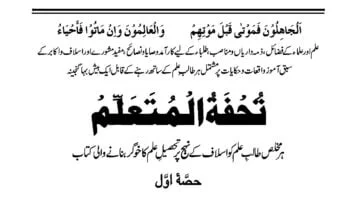 اَلْجَاهِلُوْنَ فَمَوْتٰی قَبْلَ مَوْتِهِمْ وَالْعَالِمُوْنَ وَاِنْ مَاتُوْا فَاَحْيَاءُ
علم اور علماء کے فضائل، ذمہ داریاں و مناصب، طلباء کے لیے کار آمد وصایا و نصائح، مفید مشورے اور اسلاف و اکابر کے
سبق آموز واقعات و حکایات پر مشتمل ہر طالب علم کے ساتھ رہنے کے قابل ایک بیش بہا گنجینہ
تُحْفَةُ الْمُتَعَلِّمْ
ہر مخلص طالب علم کو اسلاف کے نہج پر تحصیلِ علم کا خوگر بنانے والی کتاب
حصّہ اوّل